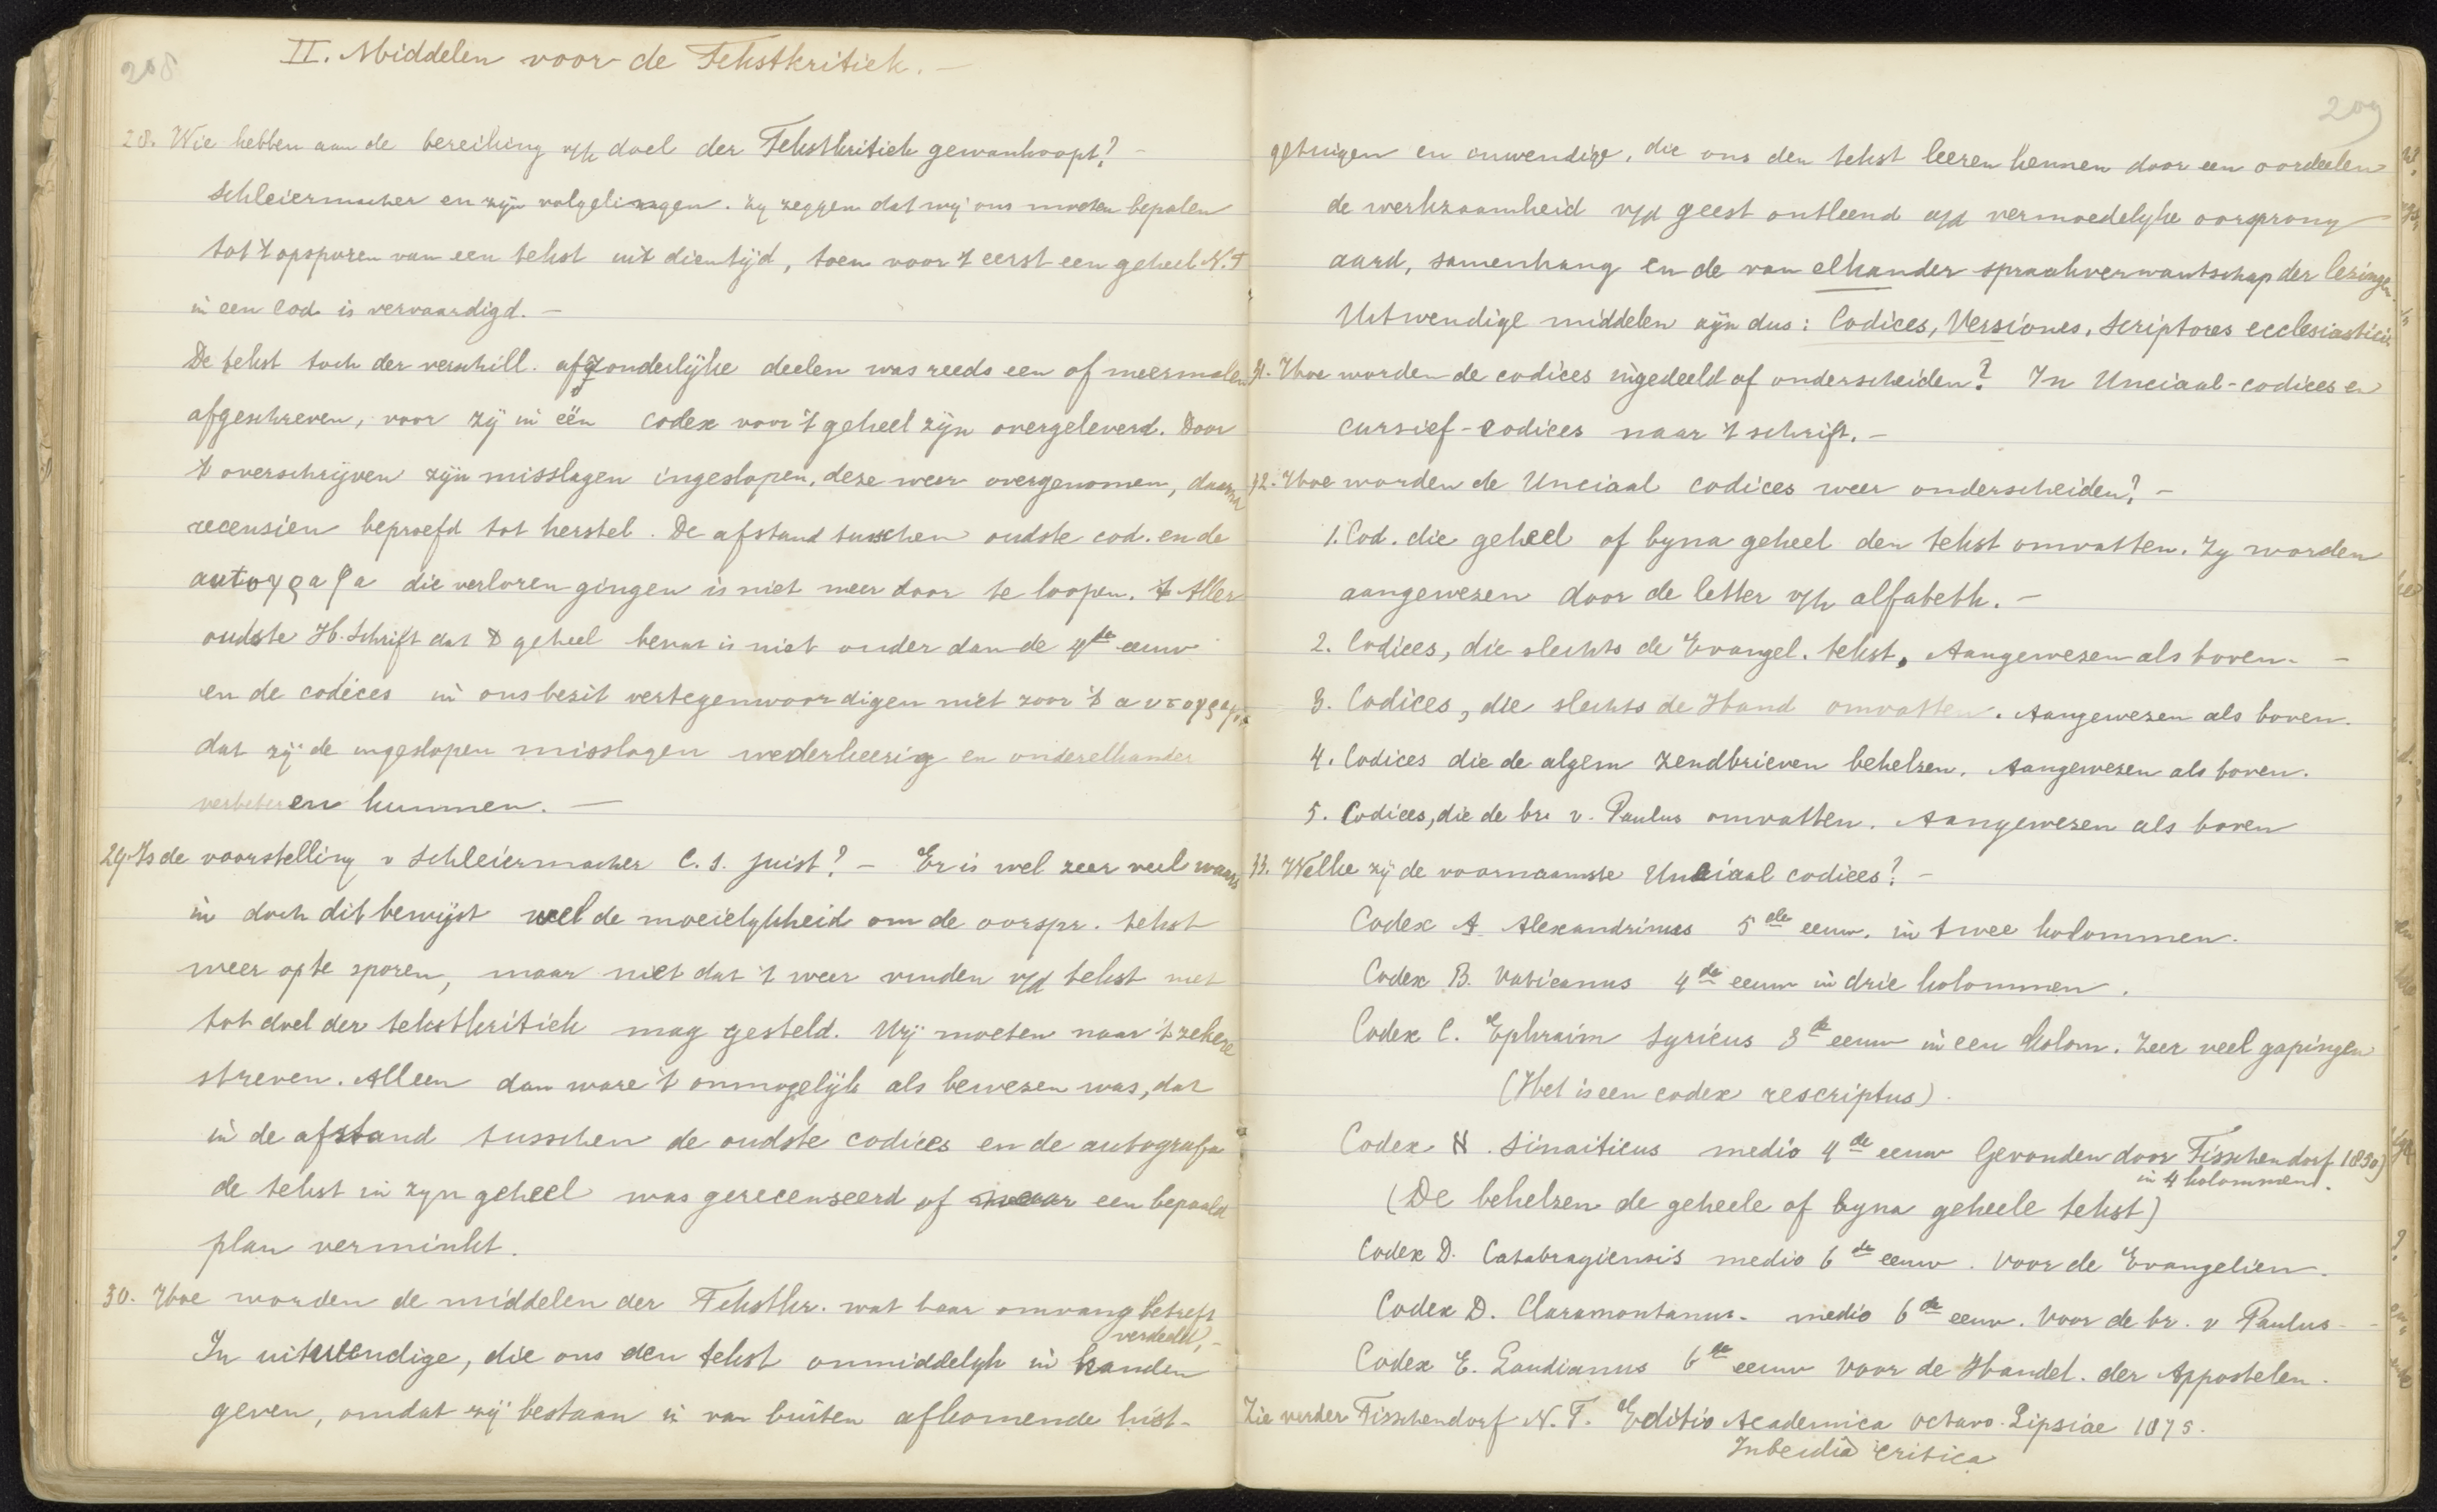 208
II. Middelen voor de Tekstkritiek. —
28. Wie hebben aan de bereiking v/h doel der Tekstkritiek gewanhoopt? —
Schleiermacher en zijn volgelingen. Zy zeggen dat wij ons moeten bepalen
tot 't opsporen van een tekst uit dien tijd, toen voor 't eerst een geheel N.T
in een Cod. is vervaardigd. —
De tekst toch der verschill. afzonderlijke deelen was reeds een of meermalen
afgeschreven, voor zij in één codex voor 't geheel zijn overgeleverd. Door
't overschrijven zijn misslagen ingeslopen, deze weer overgenomen, daarna
recensien beproefd tot herstel. De afstand tusschen oudste cod. en de
autoγραφα die verloren gingen is niet meer door te loopen. 't Aller
oudste H. Schrift dat 't geheel bevat is niet ouder dan de 4de eeuw
en de codices in ons bezit vertegenwoordigen niet zoo 't αυτογραφα
dat zij de ingeslopen misslagen wederkeerig en onderelkander
verbeteren kunnen. —
29. Is de voorstelling v Schleiermacher C. S. juist? — Er is wel zeer veel waars
in doch dit bewijst wel de moeielykheid om de oorspr. tekst
weer op te sporen, maar niet dat 't weer vinden v/d tekst niet
tot doel der tekstkritiek mag gesteld. Wij moeten naar 't zekere
streven. Alleen dan ware 't onmogelijk als bewezen was, dat
in de afstand tusschen de oudste codices en de autografa
de tekst in zyn geheel was gerecenseerd of naar een bepaald
plan verminkt.
30. Hoe worden de middelen der Tekstkr. wat haar omvang betreft
verdeeld, —
In uitwendige, die ons den tekst onmiddelyk in handen
geven, omdat zij bestaan in van buiten afkomende hist-
209
getuigen en inwendige, die ons den tekst leeren kennen door een oordeelen
de werkzaamheid v/d geest ontleend a/d vermoedelyke oorsprong
aard, samenhang en de van elkander spraakverwantschap der lezingen.
Uitwendige middelen zijn dus: Codices, Versiones, Scriptores ecclesiastici.
31. Hoe worden de codices ingedeeld of onderscheiden? In Unciaal-codices en
cursief-codices naar 't schrift. —
32. Hoe worden de Unciaal codices weer onderscheiden? —
1. Cod. die geheel of byna geheel den tekst omvatten. Zy worden
aangewezen door de letter v/h alfabeth. —
2. Codices, die slechts de Evangel. tekst, Aangewezen als boven. —
3. Codices, die slechts de Hand omvatten. Aangewezen als boven.
4. Codices die de algem zendbrieven behelzen. Aangewezen als boven.
5. Codices, die de br. v. Paulus omvatten. Aangewezen als boven
33. Welke zij de voornaamste Unciaal codices? —
Codex A Alexandrinus 5de eeuw. in twee kolommen.
Codex B. Vaticanus 4de eeuw in drie kolommen.
Codex C. Ephraim Syricus 5de eeuw in een kolom. Zeer veel gapingen
(Het is een codex rescriptus).
Codex א. Sinaiticus medio 4de eeuw Gevonden door Tisschendorf 1850)
in 4 kolommen.
(De behelzen de geheele of byna geheele tekst)
Codex D. Catabragiensis medio 6de eeuw. Voor de Evangelien.
Codex D. Claramontanus. medio 6de eeuw. Voor de br. v Paulus —
Codex E. Laudianus 6de eeuw Voor de Handel. der Appostelen.
Zie verder Tisschendorf N. T. Editio Academica octavo. Lipsiae 1875.
critica